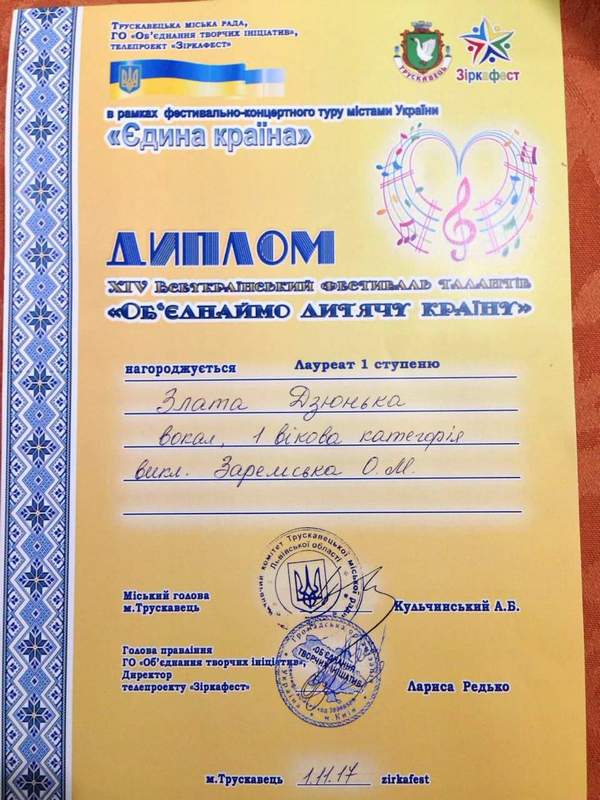 Трускавецька міська рада,
ГО «Об'єднання творчих ініціатив»,
телепроект «Зіркафест»
ТРУСКАВЕЦЬ
Зіркафест
в рамках фестивально-концертного туру містами України
«Єдина країна»
ДИПЛОМ
XIV Всеукраїнський фестиваль талантів
«Об'єднаймо дитячу країну»
нагороджується Лауреат 1 ступеню
Злата Дзюнька
вокал, 1 вікова категорія
викл. Заремська О.М.
Виконавчий комітет Трускавецької міської ради
Львівської області
Міський голова
м.Трускавець
Кульчинський А.Б.
Громадська організація
«ОБ'ЄДНАННЯ
ТВОРЧИХ ІНІЦІАТИВ»
Україна
м.Київ
Голова правління
ГО "Об'єднання творчих ініціатив",
Директор
телепроекту «Зіркафест»
Лариса Редько
м.Трускавець 1.11.17 zirkafest